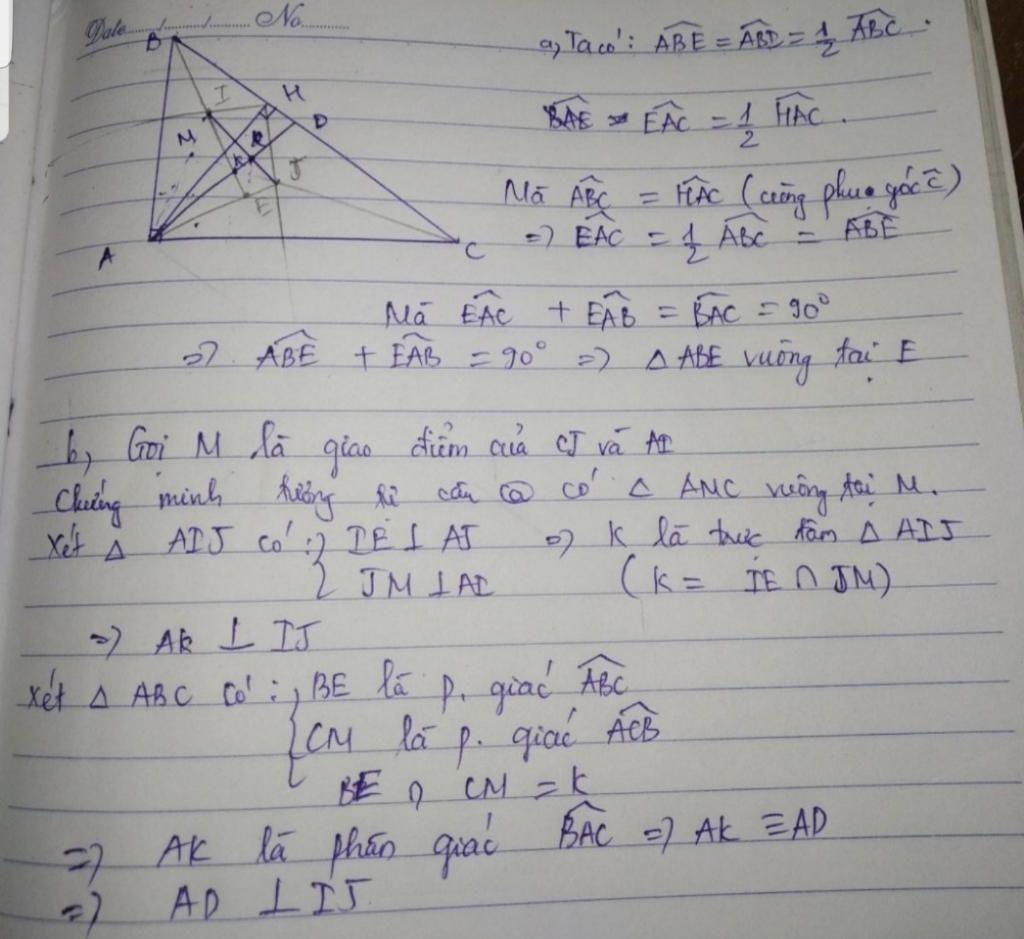 Date...../...../..........No..........
B
I
H
D
M
K
J
E
A
C
a, Ta có: ABE = ABD = 1/2 ABC.
BAE = EAC = 1/2 HAC.
Mà ABC = HAC (cùng phụ góc C)
=> EAC = 1/2 ABC = ABE
Mà EAC + EAB = BAC = 90°
=> ABE + EAB = 90° => △ ABE vuông tại E
b, Gọi M là giao điểm của CJ và AI
Chứng minh tương tự câu a có △ AMC vuông tại M.
Xét △ AIJ có: { IE ⊥ AJ => K là trực tâm △ AIJ
{ JM ⊥ AI (K = IE ∩ JM)
=> AK ⊥ IJ
Xét △ ABC có: { BE là p. giác ABC
CM là p. giác ACB
BE ∩ CM = K
=> AK là phân giác BAC => AK ≡ AD
=> AD ⊥ IJ